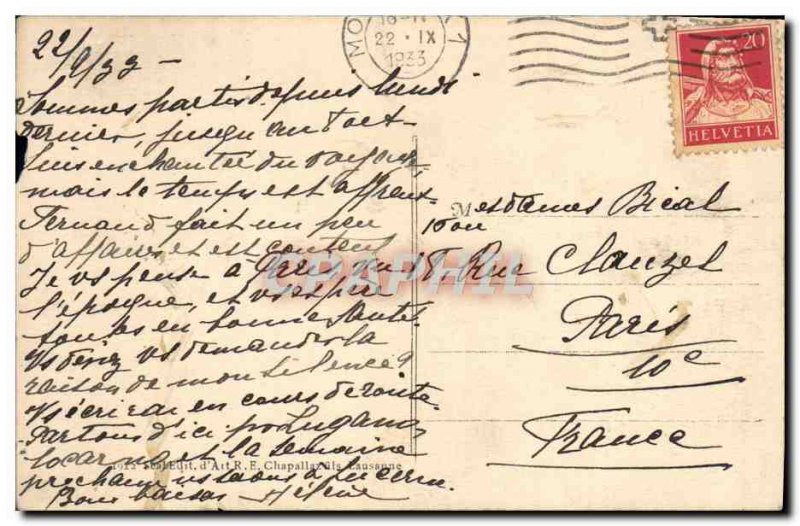 22/9/33 -
Sommes partis depuis lundi
dernier, jusqu'au 1 oct-
suis enchantée du voyage
mais le temps est affreux-
Fernand fait un peu
d'affaires et est content
Je vs pense à Paris vu
l'époque, et vs espère
toutes en bonne santé
Vs devez vs demander la
raison de mon silence?
Vs écrirai en cours de route
Partons d'ici pr Lugano
Locarno et la semaine
prochaine vs serons à Lucerne.
Bons baisers Hélène
1912 Soc. Edit. d'Art R. E. Chapallaz fils Lausanne
MO
22 · IX
1933
20
HELVETIA
Mesdames Bical
Rue Clauzel
Paris
10e
France
CPAPHIL